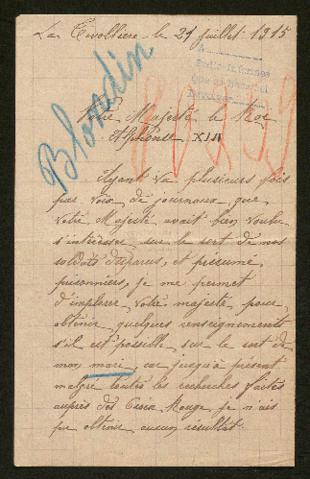 La Tivollière le 21 juillet 1915
Blondin
Votre Majesté le Roi
Alphonse XIII
Ayant vu plusieurs fois
par voix de journaux que
Votre Majesté avait bien voulu
s'intéresser sur le sort de nos
soldats disparus, et présumé
prisonniers, je me permet
d'implorer votre majesté pour
obtenir quelques renseignements
s'il est possible, sur le sort de
mon mari, car jusqu'à présent
malgré toutes les recherches faites
auprès des Croix Rouge je n'ais
pu obtenir aucun résultat.